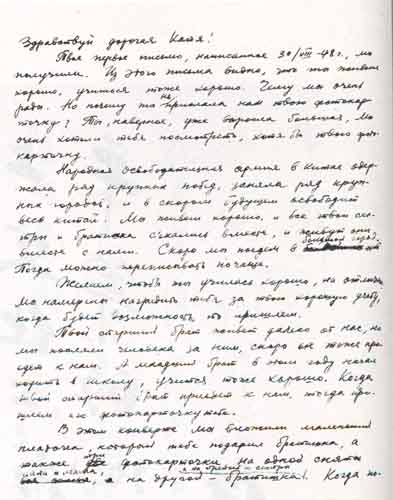 Здравствуй дорогая Катя!
Твое первое письмо, написанное 30/VIII-48г., мы
получили. Из этого письма видно, что ты живешь
хорошо, учишься тоже хорошо. Чему мы очень
рады. Но почему ты не прислала нам твою фотокар-
точку? Ты, наверное, уже выросла большая, мы
очень хотели тебя посмотреть, хотя бы твою фо-
карточку.
Народная Освободительная армия в Китае одер-
жала ряд крупных побед, заняла ряд круп-
ных городов, и в скором будущем освободит
весь Китай. Мы живем хорошо, и все твои сес-
тры и братишка съехались вместе, и живут они
вместе с нами. Скоро мы поедем в большой город.
Тогда можно переписывать почаще.
Желаем, чтобы ты училась хорошо, на отлично
Мы намерены наградить тебя за твою хорошую учебу,
когда будет возможность то пришлем.
Твой старший брат живет далеко от нас, но
мы послали человека за ним, скоро он тоже прие-
дет к нам. А младший брат в этом году начал
ходить в школу, учится тоже хорошо. Когда
твой старший брат приедет к нам, тогда при-
шлем его фотокарточку тебе.
В этом конверте мы вложили маленький
платочек, который тебе подарил братишка, а
также три фотокарточки, на одной сняты
папа и мама, а на другой - братишка, а на третьей - сестры. Когда по-